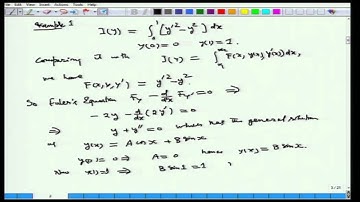 Example 1
I(y) = ∫₀¹ (y'² - y²) dx
y(0) = 0 y(1) = 1.
Comparing it with I(y) = ∫ F(x, y(x), y'(x)) dx,
we have
F(x, y, y') = y'² - y².
So Euler's Equation F_y - d/dx F_y' = 0 ⇒
- 2y - d/dx (2y') = 0
⇒ y + y'' = 0 which has the general solution
y(x) = A cos x + B sin x
y(0) = 0 ⇒ A = 0 hence y(x) = B sin x.
Now y(1) = 1 ⇒ B sin 1 = 1